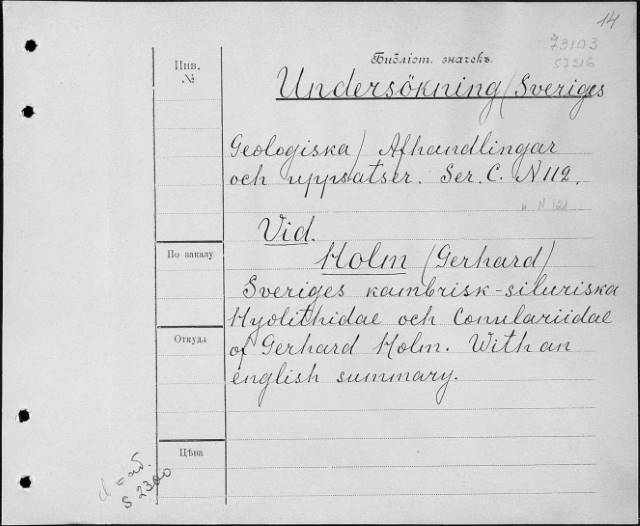 14
73103
57316
Инв.
№
Библіот. значекъ.
Undersökning (Sveriges
Geologiska) Afhandlingar
och uppsatser. Ser. C. N 112.
Vid.
Holm (Gerhard)
По заказу
Sveriges kambrisk-siluriska
Hyolithidae och Conulariidae
Откуда
of Gerhard Holm. With an
english summary.
Цѣна
S 2300